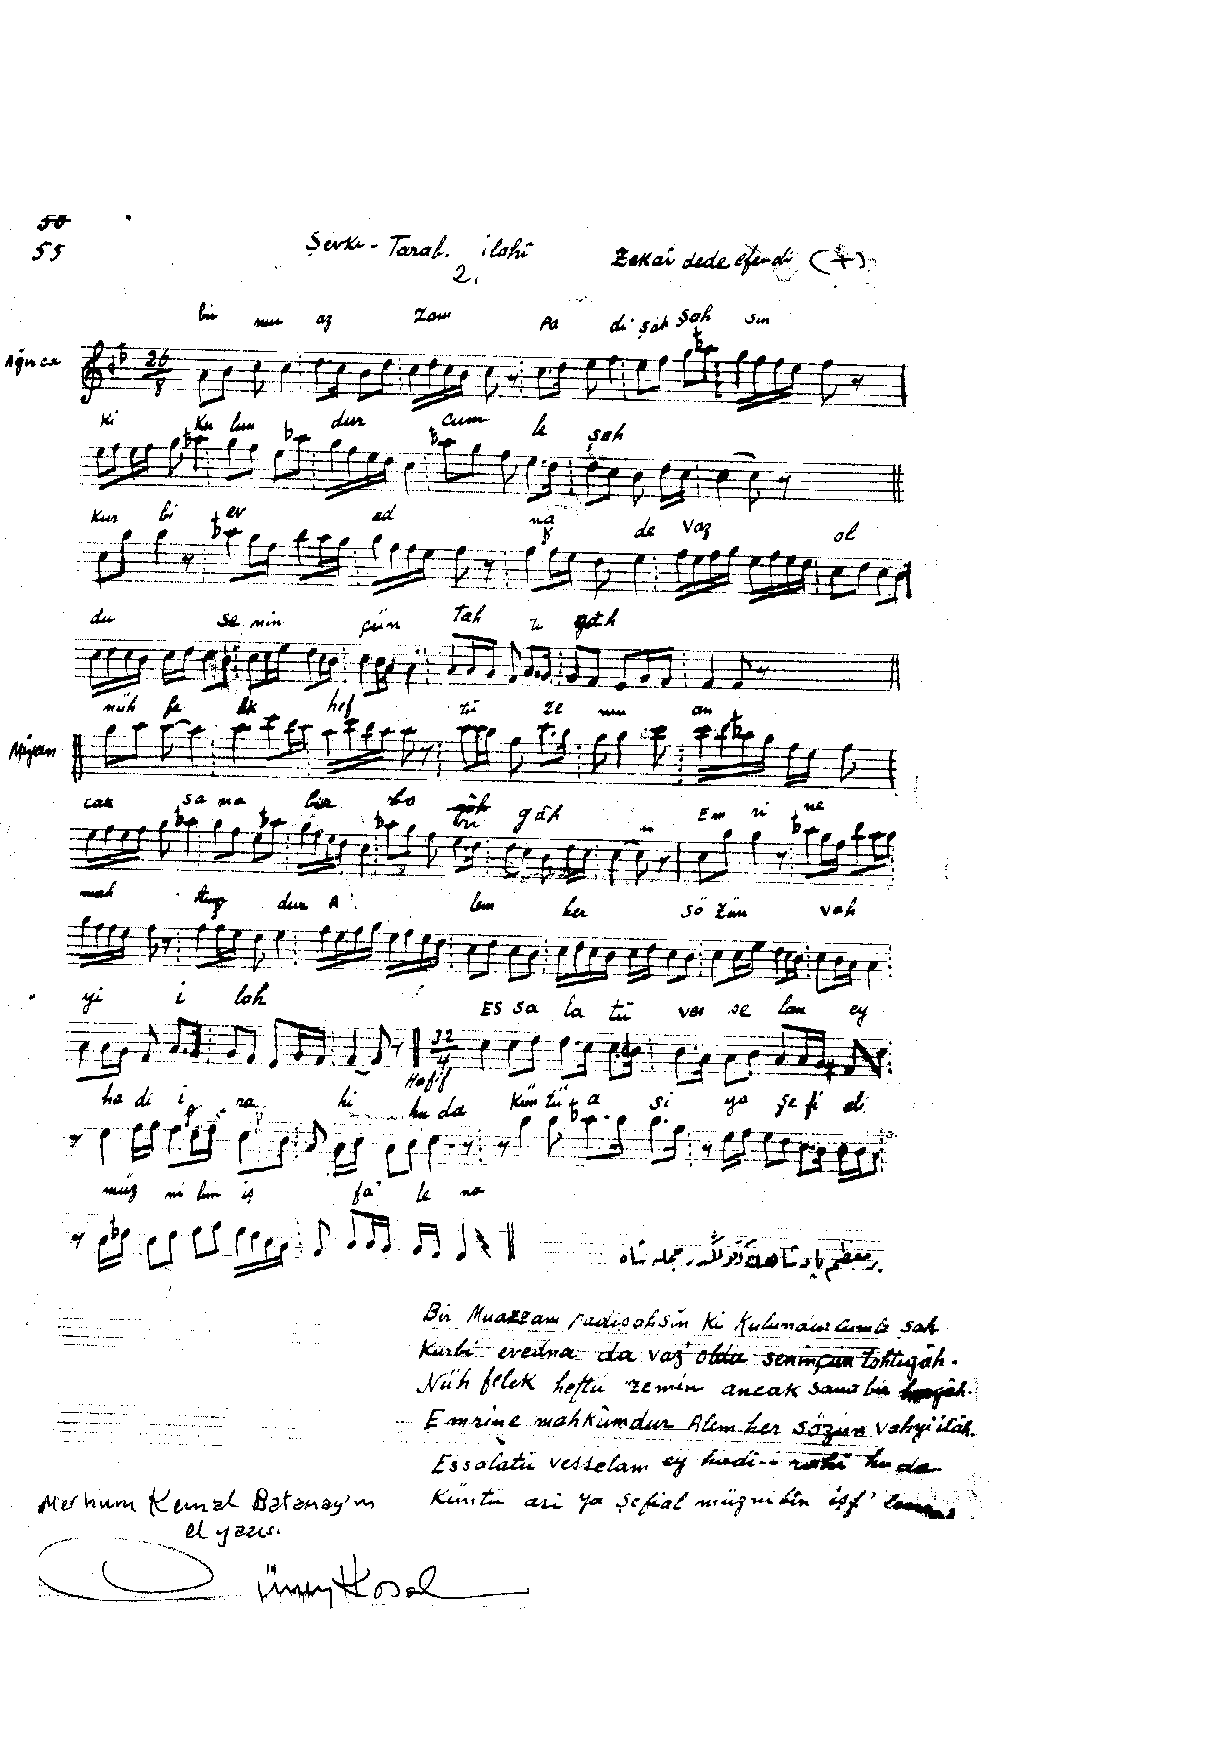 50
55
Şevkı - Tarab. ilahî
Zekâî dede efendi (+)
2.
bir mu az zam Pa di şâh şah sın
26
8
ki ku lun dur cum le şah
kur bi ev ed na de vaz ol
du se nin çün tah tı gâh
nüh fe lek hef tü ze mi an
Miyan
cak sa na bir bo gâh Em ri ne
mah dur A lem her sö zün vah
yi i lah ES sa la tü ves se lam ey
32
4
Hafif
ha di i ra hi hu da Kün tü a si ya şe fi el
müz ni bin iş fa' le na
Bir Muazzam padişahsîn ki kulundur cümle şah
Kurbi evedna da vaz' oldu seninçün tahtıgâh.
Nüh felek heftü zemîn ancak sana bir
Emrine mahkûmdur Alem her sözün vahyi ilâh.
Essalâtü vesselam ey hadi-i rahî huda
Küntü asi ya şefial müznibîn işf'
Merhum Kemal Batanay'ın
el yazısı.